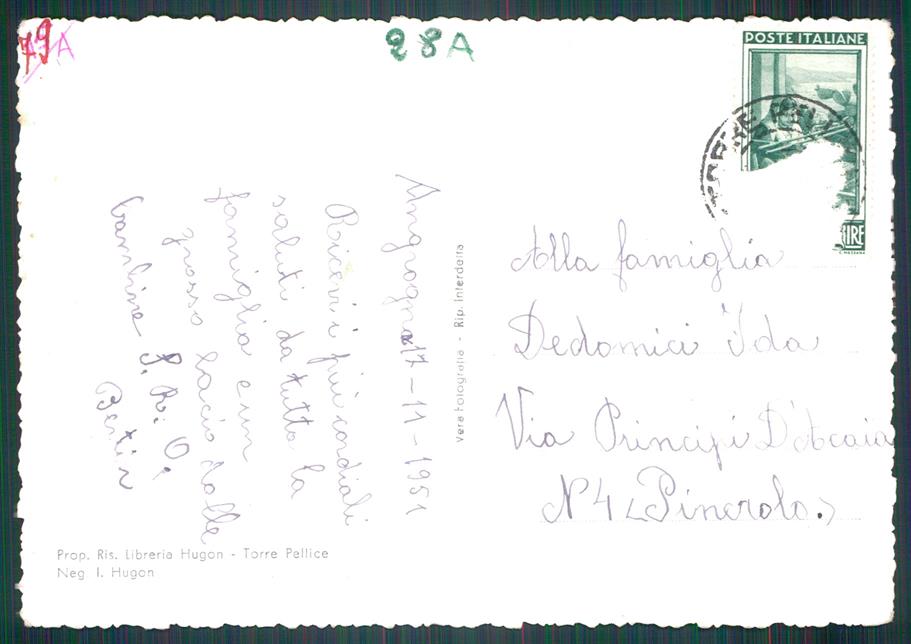 79
A
28A
POSTE ITALIANE
LIRE
Angrogna 17-11-1951
Ricevi i più cordiali
saluti da tutta la
famiglia e un
grosso bacio dalle
bambine P. R. O.
Bertin
Vera Fotografia - Rip. Interdetta
Alla famiglia
Dedomici Ida
Via Principi D'Acaia
N 4 <Pinerolo.>
Prop. Ris. Libreria Hugon - Torre Pellice
Neg I. Hugon